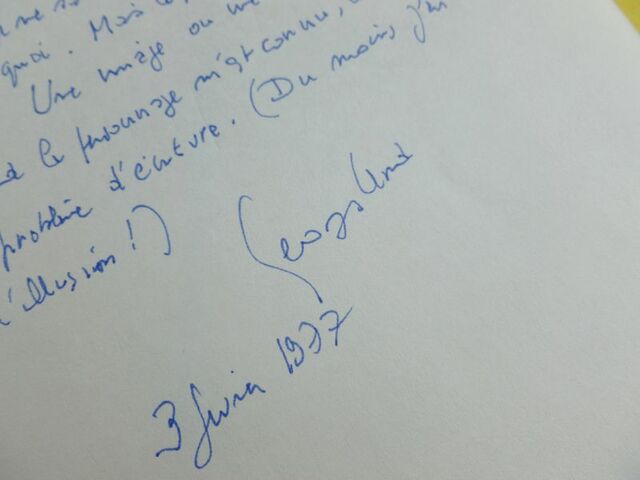 quoi. Mais
Une image ou
le personnage m'est connu,
problème d'écriture. (Du moins j'en
l'illusion!)
3 février 1977